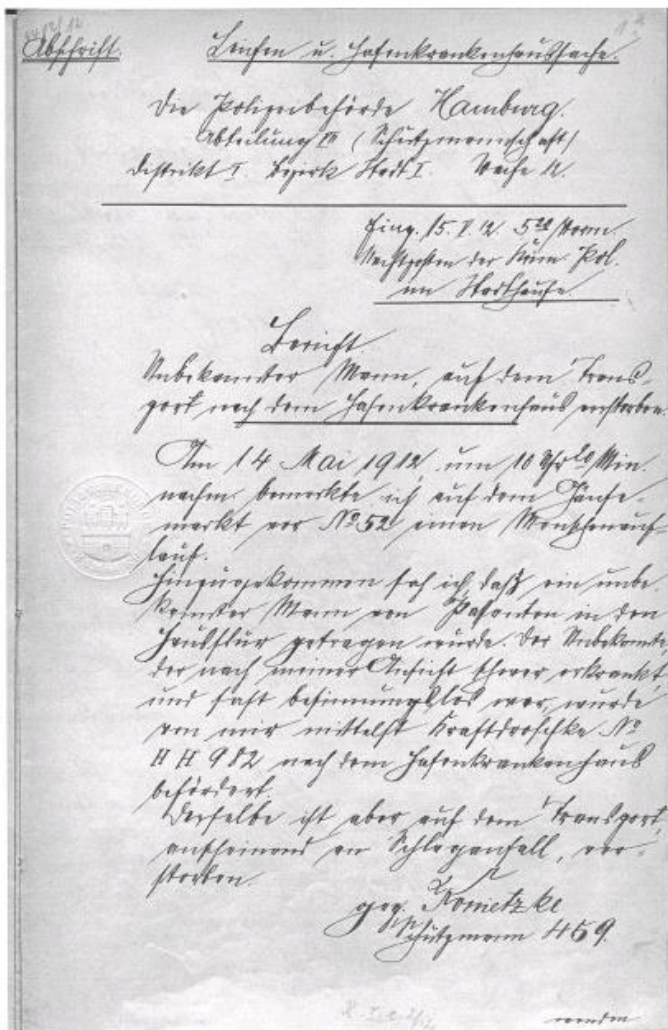 Abschrift. Leichen u. Hafenkrankenhaussache.
Die Polizeibehörde Hamburg.
Abteilung IV (Schutzmannschaft)
Distrikt I. Bezirk Stadt I. Wache 12.
Eing. 15. V. 12. 5 20 /Vorm.
Nachtposten der Krim. Pol.
im Stadthause.
Bericht.
Unbekannter Mann, auf dem Trans-
port nach dem Hafenkrankenhaus verstorben.
Am 14 Mai 1912 um 10 Uhr 20 Min.
nachm. bemerkte ich auf dem Gänse-
markt vor No 52 einen Menschenauf-
lauf.
Hinzugekommen sah ich daß ein unbe-
kannter Mann von Passanten in den
Hausflur getragen wurde. Der Unbekannte,
der nach meiner Ansicht schwer erkrankt
und fast besinnungslos war, wurde
von mir mittelst Kraftdroschke No
H H 982 nach dem Hafenkrankenhaus
befördert.
Derselbe ist aber auf dem Transport,
anscheinend an Schlaganfall, ver-
storben.
gez. Konietzke
Schutzmann 459.
wenden